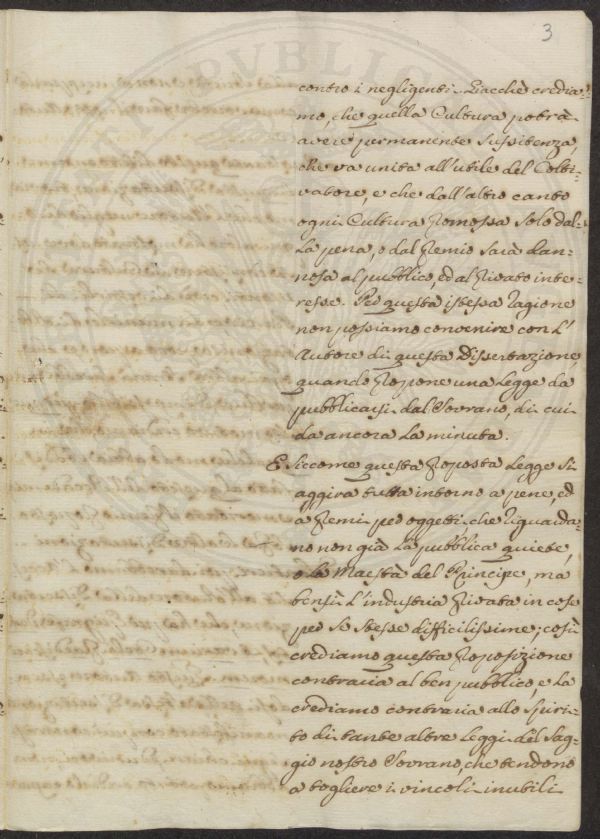 3
contro i negligenti. Giacchè credia-
mo, che quella Cultura potrà
avere permanente sussistenza,
che va unita all'utile del Colti-
vatore, e che dall'altro canto
ogni Cultura promossa solo dal-
la pena, o dal premio sarà dan-
nosa al pubblico, ed al privato inte-
resse. Per questa istessa ragione
non possiamo convenire con l'
Autore di questa Dissertazione,
quando propone una Legge da
pubblicarsi dal Sovrano, di cui
da ancora la minuta.
E siccome questa proposta Legge si
aggira tutta intorno a pene, ed
a premi per oggetti, che riguarda-
no non già la pubblica quiete,
o la Maestà del Principe, ma
bensì l'industria privata in cose
per se stesse difficilissime; così
crediamo questa proposizione
contraria al ben pubblico, e la
crediamo contraria allo spiri-
to di tante altre Leggi del sag-
gio nostro Sovrano, che tendono
a togliere i vincoli inutili